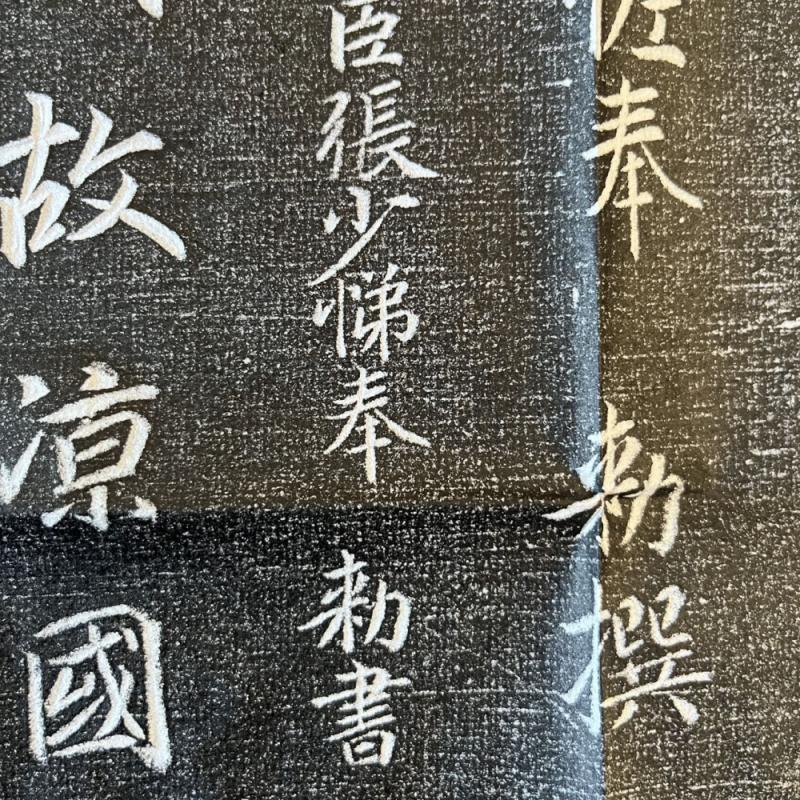 佐奉 勅撰
臣張少悌奉 勅書
故涼國